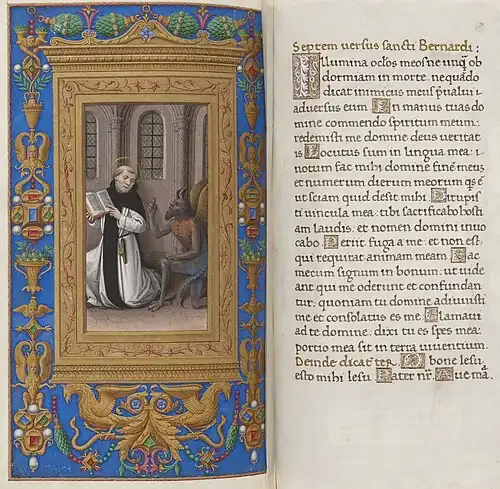 Septem versus sancti Bernardi:
Illumina oclos meos ne unq̃ ob
dormiam in morte. nequãdo
dicat inimicus meus p̃ualui
adversus eum In manus tuas do
mine commendo spiritum meum:
redemisti me domine deus veritat
is Locutus sum in lingua mea: i
notum fac mihi domine finẽ meuz
et numerum dierum meorum qs ẽ
ut sciam quid desit mihi Dirupis
ti vincula mea: tibi sacrificabo hosti
am laudis: et nomen domini invo
cabo Periit fuga a me: et non est
qui requirat animam meam Fac
mecum signum in bonum: ut vide
ant qui me oderunt et confundan
tur: quoniam tu domine adiuvisti
me et consolatus es me Clamavi
ad te domine: dixi tu es spes mea:
portio mea sit in terra viventium
Deinde dicat̃ ter O bone Iesu
esto mihi Iesu Pater nr̃. Ave mã.